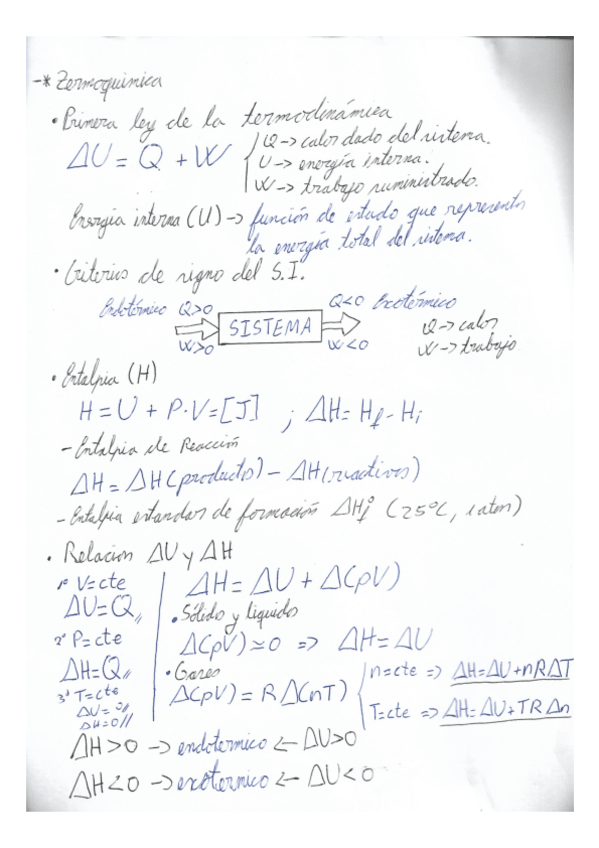 -* Termoquimica
• Primera ley de la termodinámica
ΔU = Q + W
Q -> calor dado del sistema.
U -> energía interna.
W -> trabajo suministrado.
Energia interna (U) -> función de estado que representa
la energía total del sistema.
• Criterios de signo del S.I.
Endotérmico Q>0 Q<0 Exotérmico
SISTEMA
W>0 W<0
Q -> calor
W -> trabajo
• Entalpia (H)
H = U + P·V = [J] ; ΔH = Hf - Hi
- Entalpia de Reacción
ΔH = ΔH(productos) - ΔH(reactivos)
- Entalpia estandar de formación ΔHf° (25°C, 1 atm)
• Relacion ΔU y ΔH
1º V=cte
ΔU=Q,,
2º P=cte
ΔH=Q,,
3º T=cte
ΔU=0//
ΔH=0//
ΔH = ΔU + Δ(pV)
• Sólido y liquido
Δ(pV) ≃ 0 => ΔH = ΔU
• Gases
Δ(pV) = RΔ(nT)
n=cte => ΔH=ΔU+nRΔT
T=cte => ΔH=ΔU+TRΔn
ΔH>0 -> endotermico <- ΔU>0
ΔH<0 -> exotermico <- ΔU<0